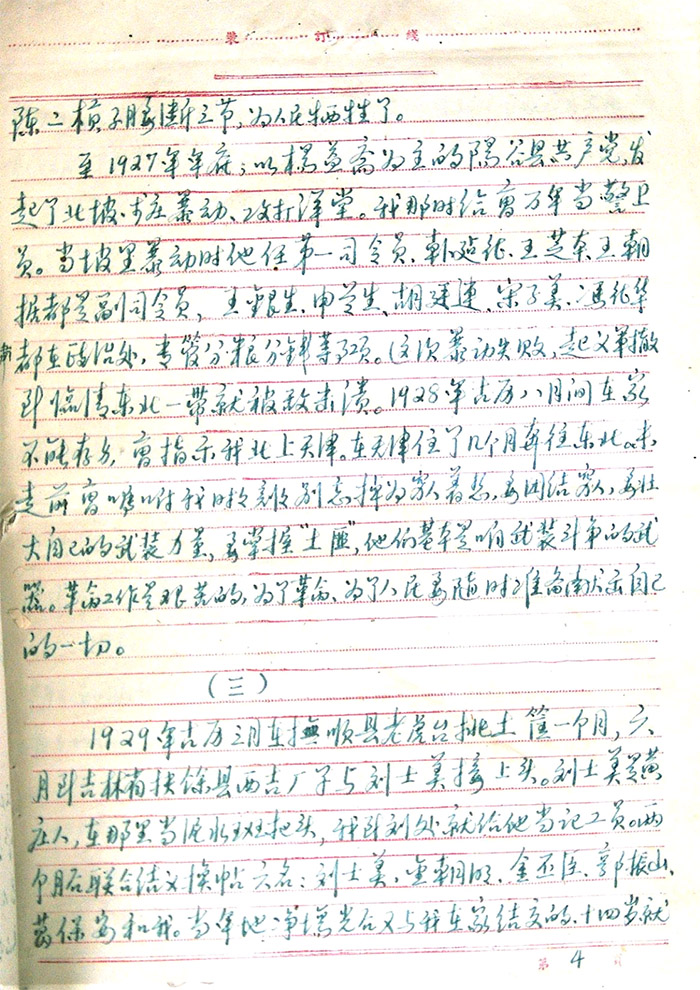 装 订 线
陈二横子腰断三节，为人民牺牲了。
至1927年年底，以杨益斋为主的阳谷县共产党，发
起了北坡、才庄暴动、攻打洋堂。我那时给曹万年当警卫
员。当坡里暴动时他任第一司令员、韩建征、王芝本、王朝
据都是副司令员，王银生、申兰生、胡连、宋子美、冯征华
都在政治处，专管分粮分钱等项。这次暴动失败，起义军撤
到临清东北一带就被敌击溃。1928年古历八月间在家
不能存身，曹指示我北上天津。在天津住了几个月奔往东北。未
走前曹嘱咐我时刻别忘掉为穷人着想，要团结穷人，要壮
大自己的武装力量，要掌握“土匪”，他们基本是咱武装斗争的武
器。革命工作是艰苦的，为了革命、为了人民要随时准备献出自己
的一切。
（三）
1929年古历三月在抚顺县老虎台挑土筐一个月，六
月到吉林省扶馀县西吉厂子与刘士美接上头。刘士美是黄
庄人，在那里当泥水班把头，我到刘处就给他当记工员。两
个月后联合结义换帖六名：刘士美、金朝明、金丕臣、郭振山、
葛保安和我。当年地净场光后又与我在家结交的、十四岁就
第 4 页